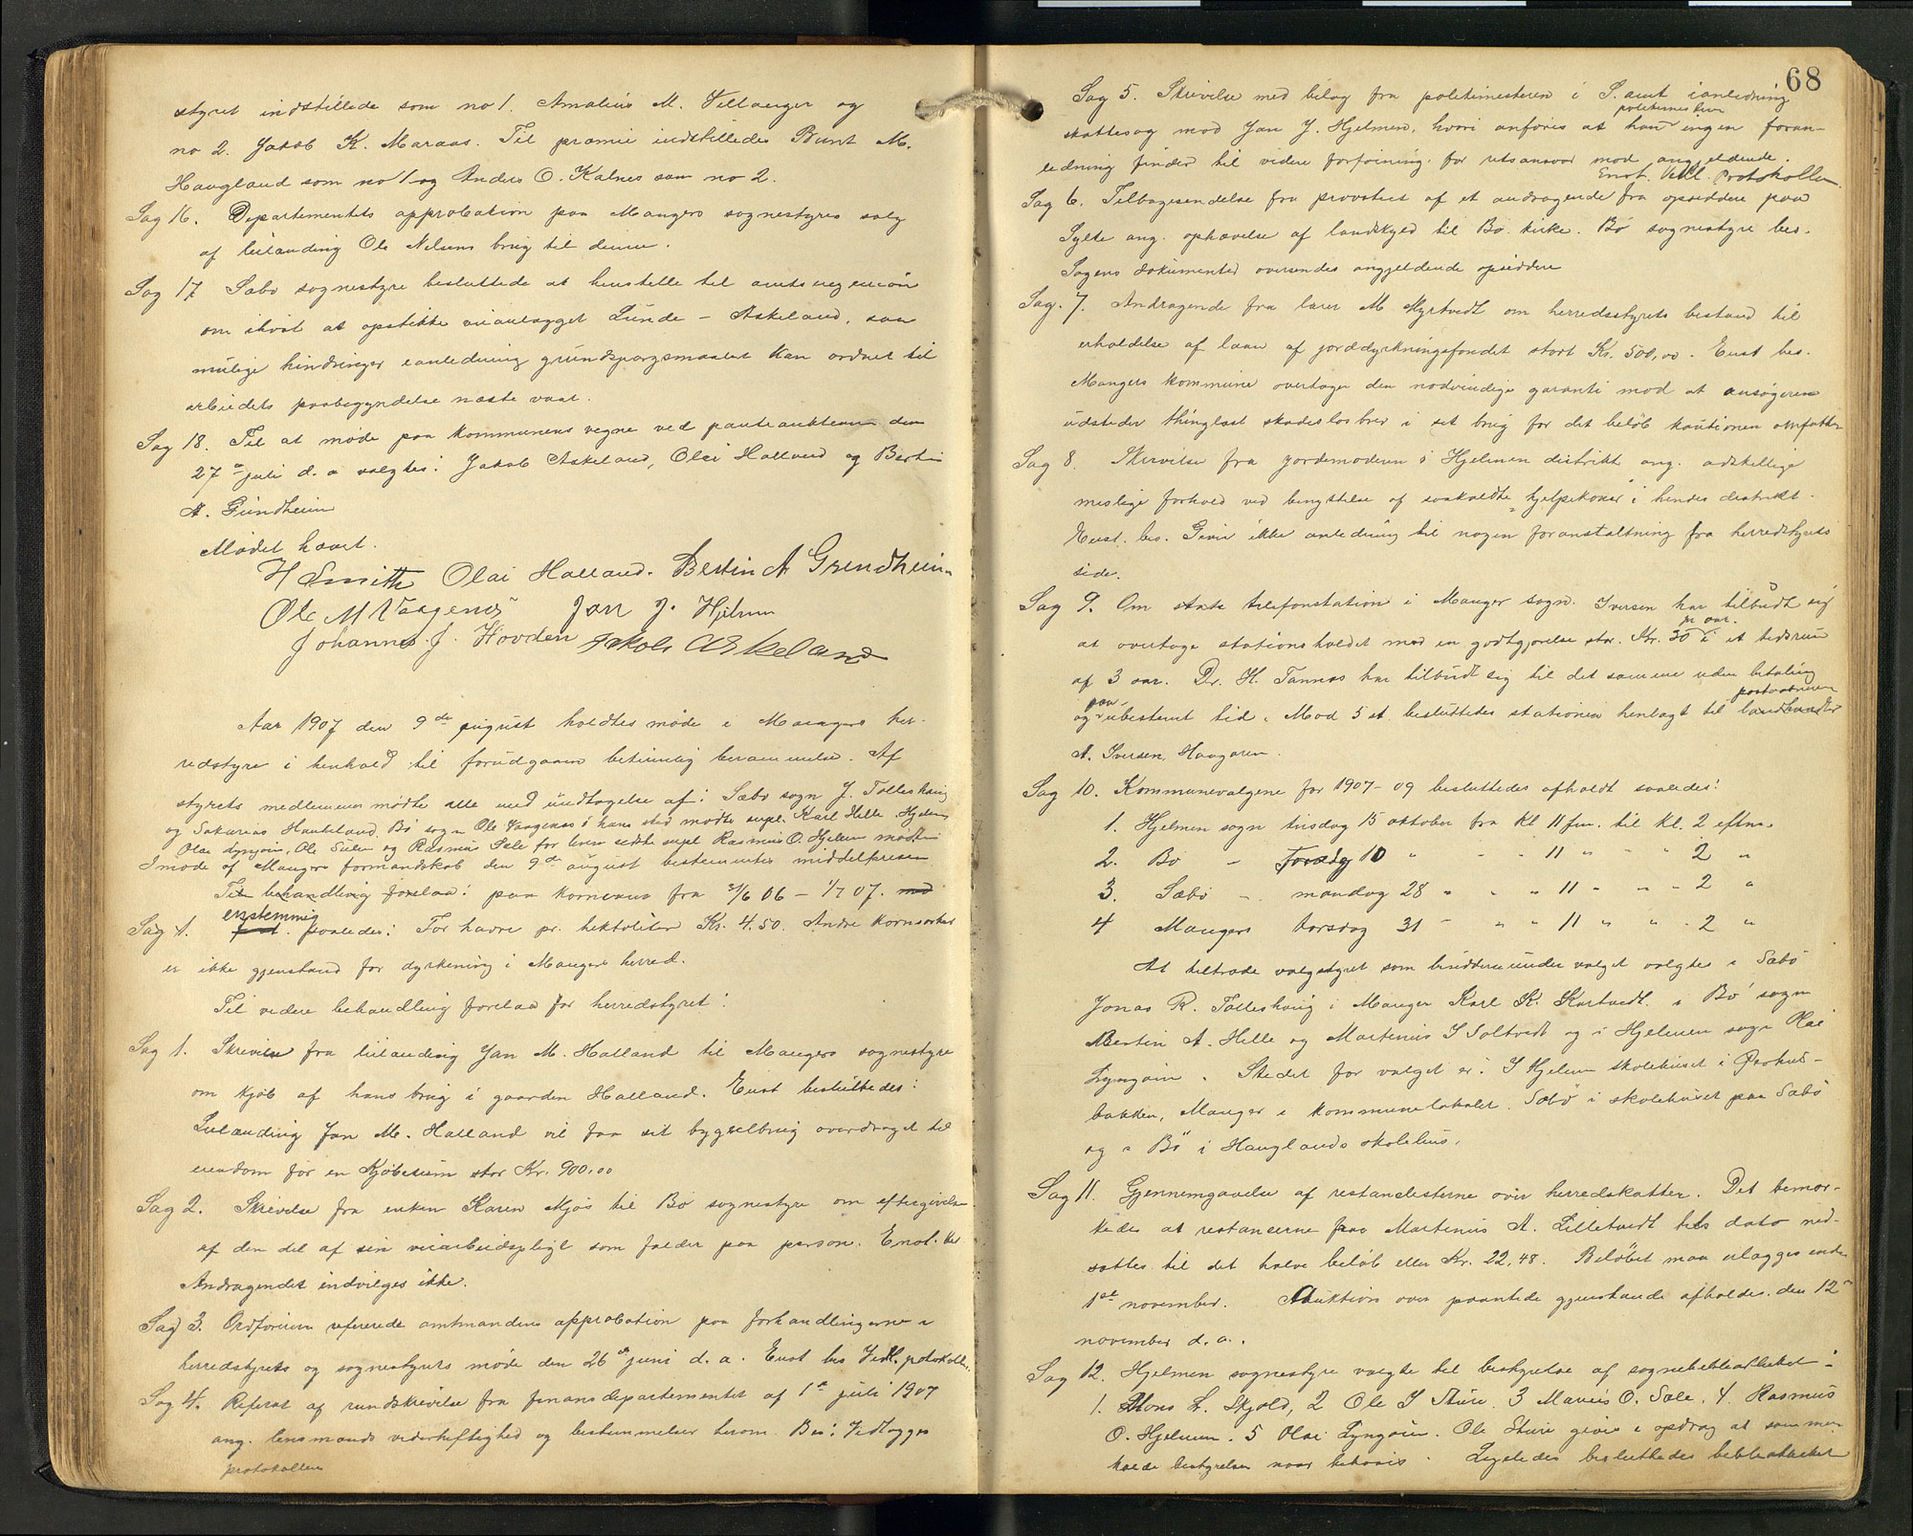 styret indstillede som no 1. Amalius M. Vetlanger og
no 2. Jakob K. Maraas. Til præmie indstilledes Bernt M.
Haugland som no 1 og Anders O. Kalnes som no 2.
Sag 16. Departementets approbation paa Mangers sognestyres salg
af leilænding Ole Nilsens brug til denne.
Sag 17 Sæbø sognestyre besluttede at henstille til amtsingeniør
om ihøst at opstikke veianlægget Lunde - Askeland, saa
mulige hindringer i anledning grundspørgsmaalet kan ordnes til
arbeidets paabegyndelse næste vaar.
Sag 18. Til at møde paa kommunens vegne ved panteauktionen den
27de juli d. a valgtes: Jakob Askeland, Olai Halland og Bertin
A. Grindheim
Mødet hævet.
H Smith Olai Halland. Bertin A Grendheim
Ole M Vaagenes Jan J. Hjelmen
Johannes J. Hovden Jakob Askeland
Aar 1907 den 9de august holdtes møde i Mangers her-
redstyre i henhold til forudgaaen betimelig berammelse. Af
styrets medlemmer mødte alle med undtagelse af: Sæbø sogn J. Tolleshaug
og Sakarias Haukeland, Bø sogn Ole Vaagenes i hans sted mødte supl. Karl Hille. Hjelmen
Olai Lyngøen, Ole Sture og Rasmus Sele for hvem sidste supl Rasmus O. Hjelmen mødte.
I møde af Mangers formandskab den 9de august bestemtes middelprisen
Til behandling forelaa: paa kornvarer fra 1/6 06 - 1/7 07. med
enstemmig
Sag 1. saaledes: For havre pr. hektoliter Kr. 4.50. Andre kornsorter
er ikke gjenstand for dyrkning i Manger herred.
Til videre behandling forelaa for herredstyret:
Sag 1. Skrivelse fra leilænding Jan M. Halland til Mangers sognestyre
om kjøb af hans brug i gaarden Halland. Enst besluttedes:
Leilænding Jan M. Halland vil faa sit bygselbrug overdraget til
eiendom for en kjøbesum stor Kr. 900.00
Sag 2. Skrivelse fra enken Karen Mjøs til Bø sognestyre om eftergivelse
af den del af sin veiarbeidspligt som falder paa person. Enst. bes
Andragendet indvilges ikke.
Sag 3. Ordføreren refererede amtmandens approbation paa forhandlingerne i
herredstyrets og sognestyrets møde den 26de juni d. a. Enst bes Vedl. protokollen.
Sag 4. Referat af rundskrivelse fra finansdepartementet af 1ste juli 1907
ang. lensmænds vederheftighed og bestemmelser herom. Bes: Vedlægges
protokollen
68
Sag 5. Skrivelse med bilag fra politimesteren i S. amt i anledning
politimesteren
skattesag mod Jan J. Hjelmen, hvori anføres at han ingen foran-
ledning finder til videre forføining for retsansvar mod angjeldende.
Enst. Vedl. protokollen
Sag 6. Tilbagesendelse fra provstiet af et andragende fra opsiddere paa
Sylte ang. ophævelse af landskyld til Bø kirke. Bø sognestyre bes.
Sagens dokumenter oversendes angjeldende opsiddere
Sag. 7. Andragende fra lærer M Myrtvedt om herredsstyrets bestand til
erholdelse af laan af jorddyrkningsfondet stort Kr. 500,00. Enst bes.
Mangers kommune overtager den nødvendige garanti mod at ansøgeren
udsteder thinglæst skadesløsbrev i sit brug for det beløb kautionen omfatter
Sag 8. Skrivelse fra jordemoderen i Hjelmen distrikt ang. adskillige
mislige forhold ved benyttelse af saakaldte „hjelpekoner“ i hendes distrikt.
Enst. bes. Giver ikke anledning til nogen foranstaltning fra herredstyrets
side.
Sag 9. Om stats telefonstation i Manger sogn. Iversen har tilbudt sig
pr aar.
at overtage stationsholdet mod en godtgjørelse stor. Kr. 30 i et tidsrum
af 3 aar. Dr. H. Tannæs har tilbudt sig til det samme uden betaling
paa postaabner
og ubestemt tid. Mod 5 st. besluttedes stationen henlagt til landhandler
A. Iversen, Haugøren.
Sag 10. Kommunevalgene for 1907-09 besluttedes afholdt saaledes:
1. Hjelmen sogn tirsdag 15 oktober fra kl 11 fm. til kl. 2 eftm.
2. Bø - torsdag 10 " - " 11 " " " 2 "
3. Sæbø - mandag 28 " " " 11 " " " 2 "
4 Mangers torsdag 31 - " " 11 " " " 2 "
At tiltræde valgstyret som bisiddere under valget valgtes i Sæbø
Jonas R. Tolleshaug i Manger Karl K. Kartvedt. i Bø sogn
Bertin A. Hille og Martinus J Toltvedt og i Hjelmen sogn Olai
Lyngøen. Stedet for valget er: I Hjelmen skolehuset i Prøhus-
bakken, Manger i kommunelokalet. Sæbø i skolehuset paa Sæbø
og i Bø i Hauglands skolehus.
Sag 11. Gjennemgaaelse af restancelisterne over herredskatten. Det bemær-
kedes at restancerne paa Martinus A. Lilletvedt tils dato ned-
sættes til det halve beløb eller Kr. 22,48. Beløbet maa erlægges inden
1ste november. Auktion over pantede gjenstande afholdes den 12te
november d. a.
Sag 12. Hjelmen sognestyre valgte til bestyrelse af sognebibliotheket:
1. Mons L. Skjold, 2 Ole J Sture. 3 Marius O. Sæle. 4. Rasmus
O. Hjelmen. 5 Olai Lyngøen. Ole Sture gives i opdrag at sammen-
kalde bestyrelsen naar behøves. Ligeledes besluttedes bibliotheket